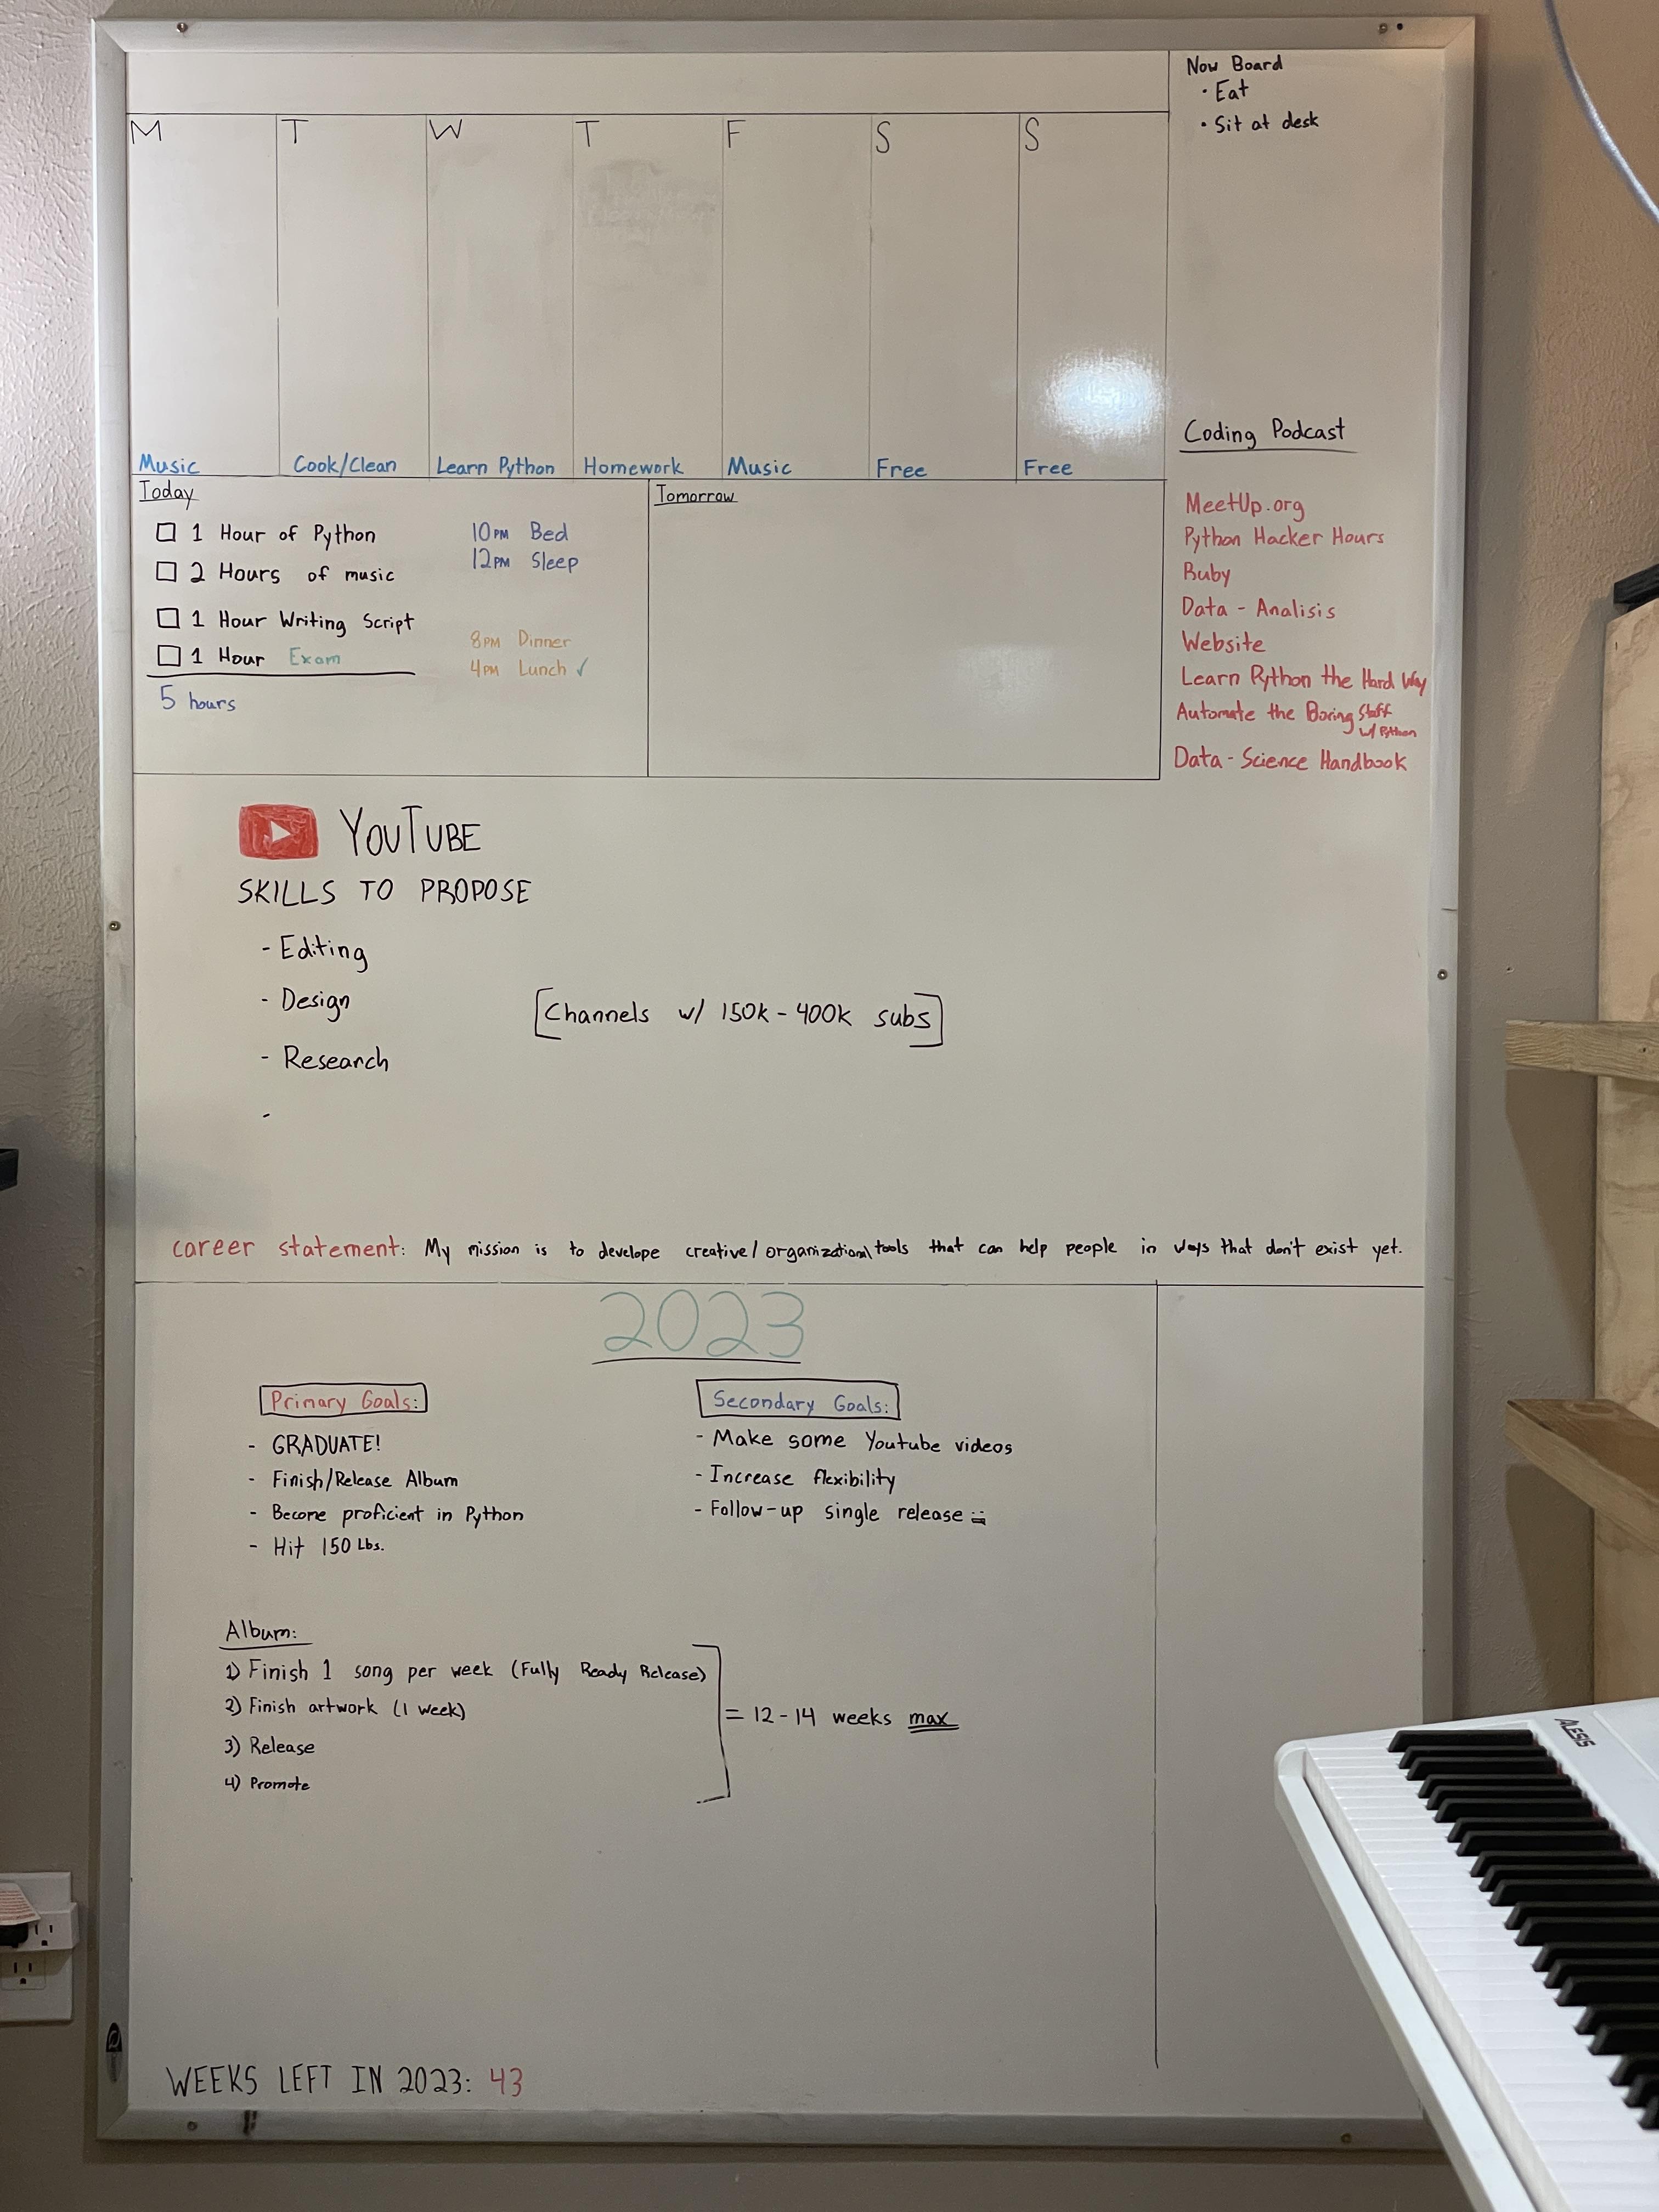 Now Board
• Eat
• Sit at desk
M T W T F S S
Music Cook/Clean Learn Python Homework Music Free Free
Today
☐ 1 Hour of Python
☐ 2 Hours of music
☐ 1 Hour Writing Script
☐ 1 Hour Exam
5 hours
10PM Bed
12PM Sleep
8PM Dinner
4PM Lunch ✓
Tomorrow
Coding Podcast
MeetUp.org
Python Hacker Hours
Ruby
Data - Analisis
Website
Learn Python the Hard Way
Automate the Boring Stuff
w/ Python
Data - Science Handbook
YOUTUBE
SKILLS TO PROPOSE
- Editing
- Design
- Research
-
[Channels w/ 150k - 400k subs]
career statement: My mission is to develope creative/organizational tools that can help people in ways that don't exist yet.
2023
Primary Goals:
- GRADUATE!
- Finish/Release Album
- Become proficient in Python
- Hit 150 Lbs.
Secondary Goals:
- Make some Youtube videos
- Increase flexibility
- Follow-up single release
Album:
1) Finish 1 song per week (Fully Ready Release)
2) Finish artwork (1 week)
3) Release
4) Promote
= 12-14 weeks max
WEEKS LEFT IN 2023: 43
ALESIS